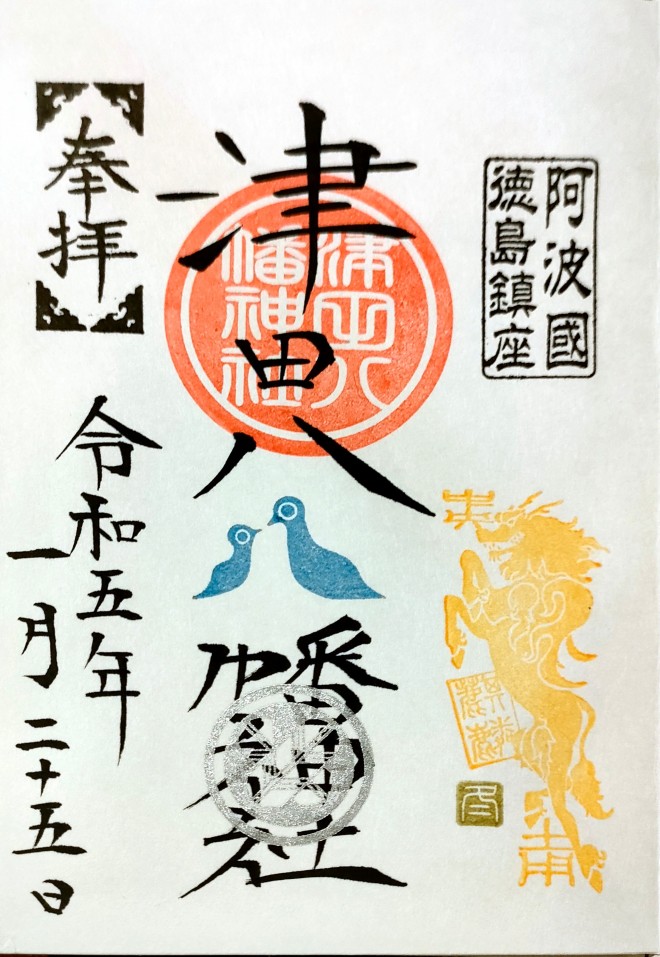 阿波國
徳島鎮座
津田八幡神社
津田八
幡神社
奉拝
令和五年
一月二十五日
麒麟